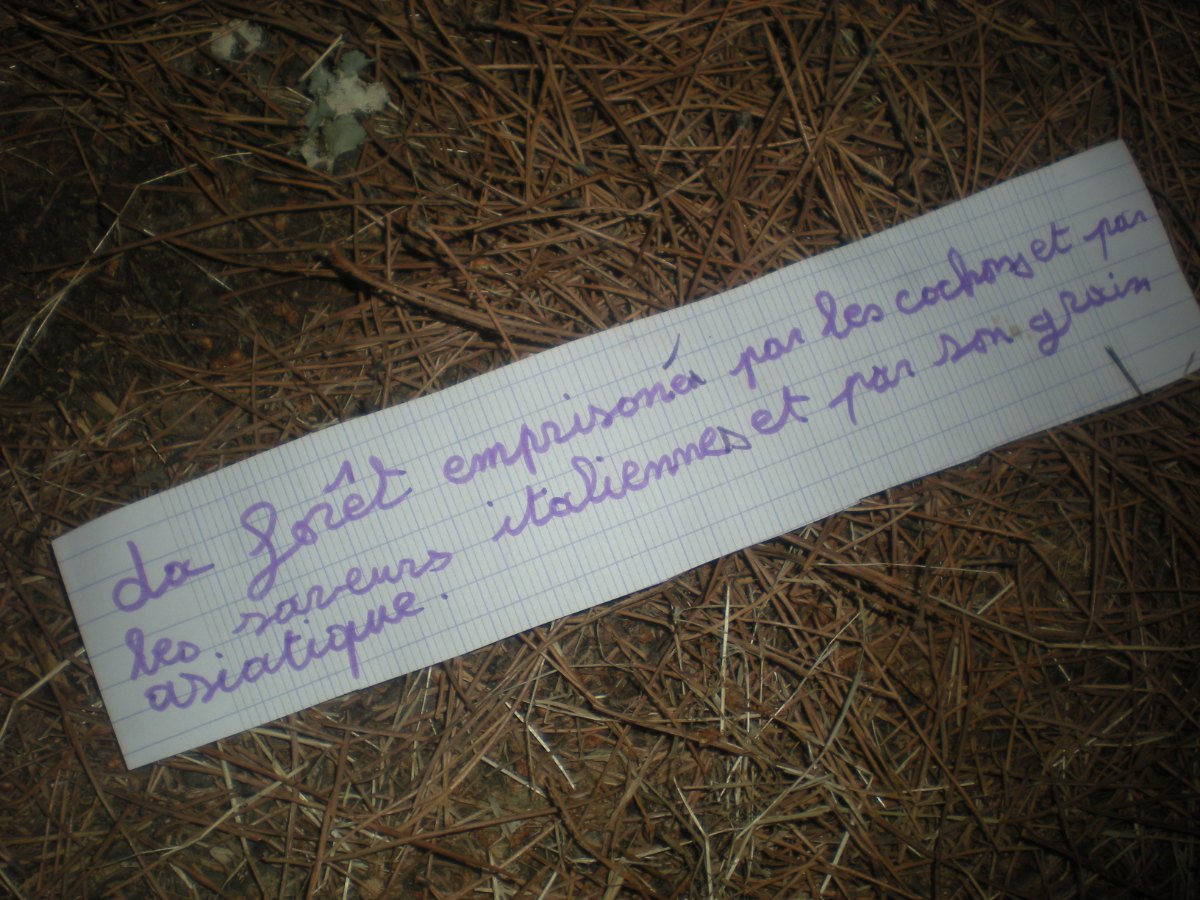 La forêt emprisoné par les cochons et par
les saveurs italiennes et par son grain
asiatique.